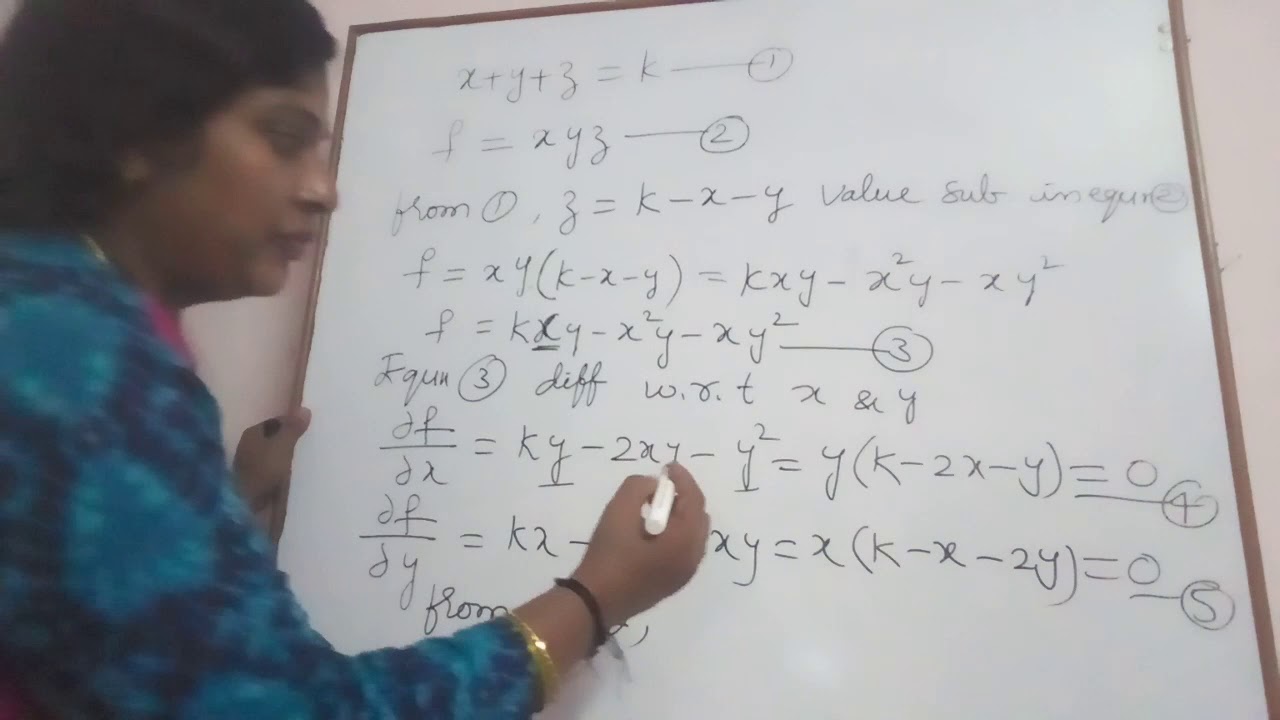 x+y+z = k — ①
f = xyz — ②
from ①, z = k-x-y value sub in equn ②
f = xy(k-x-y) = kxy - x²y - xy²
f = kxy - x²y - xy² — ③
Equn ③ diff w.r.t x & y
∂f/∂x = ky - 2xy - y² = y(k-2x-y) = 0 — ④
∂f/∂y = kx - xy = x(k-x-2y) = 0 — ⑤
from